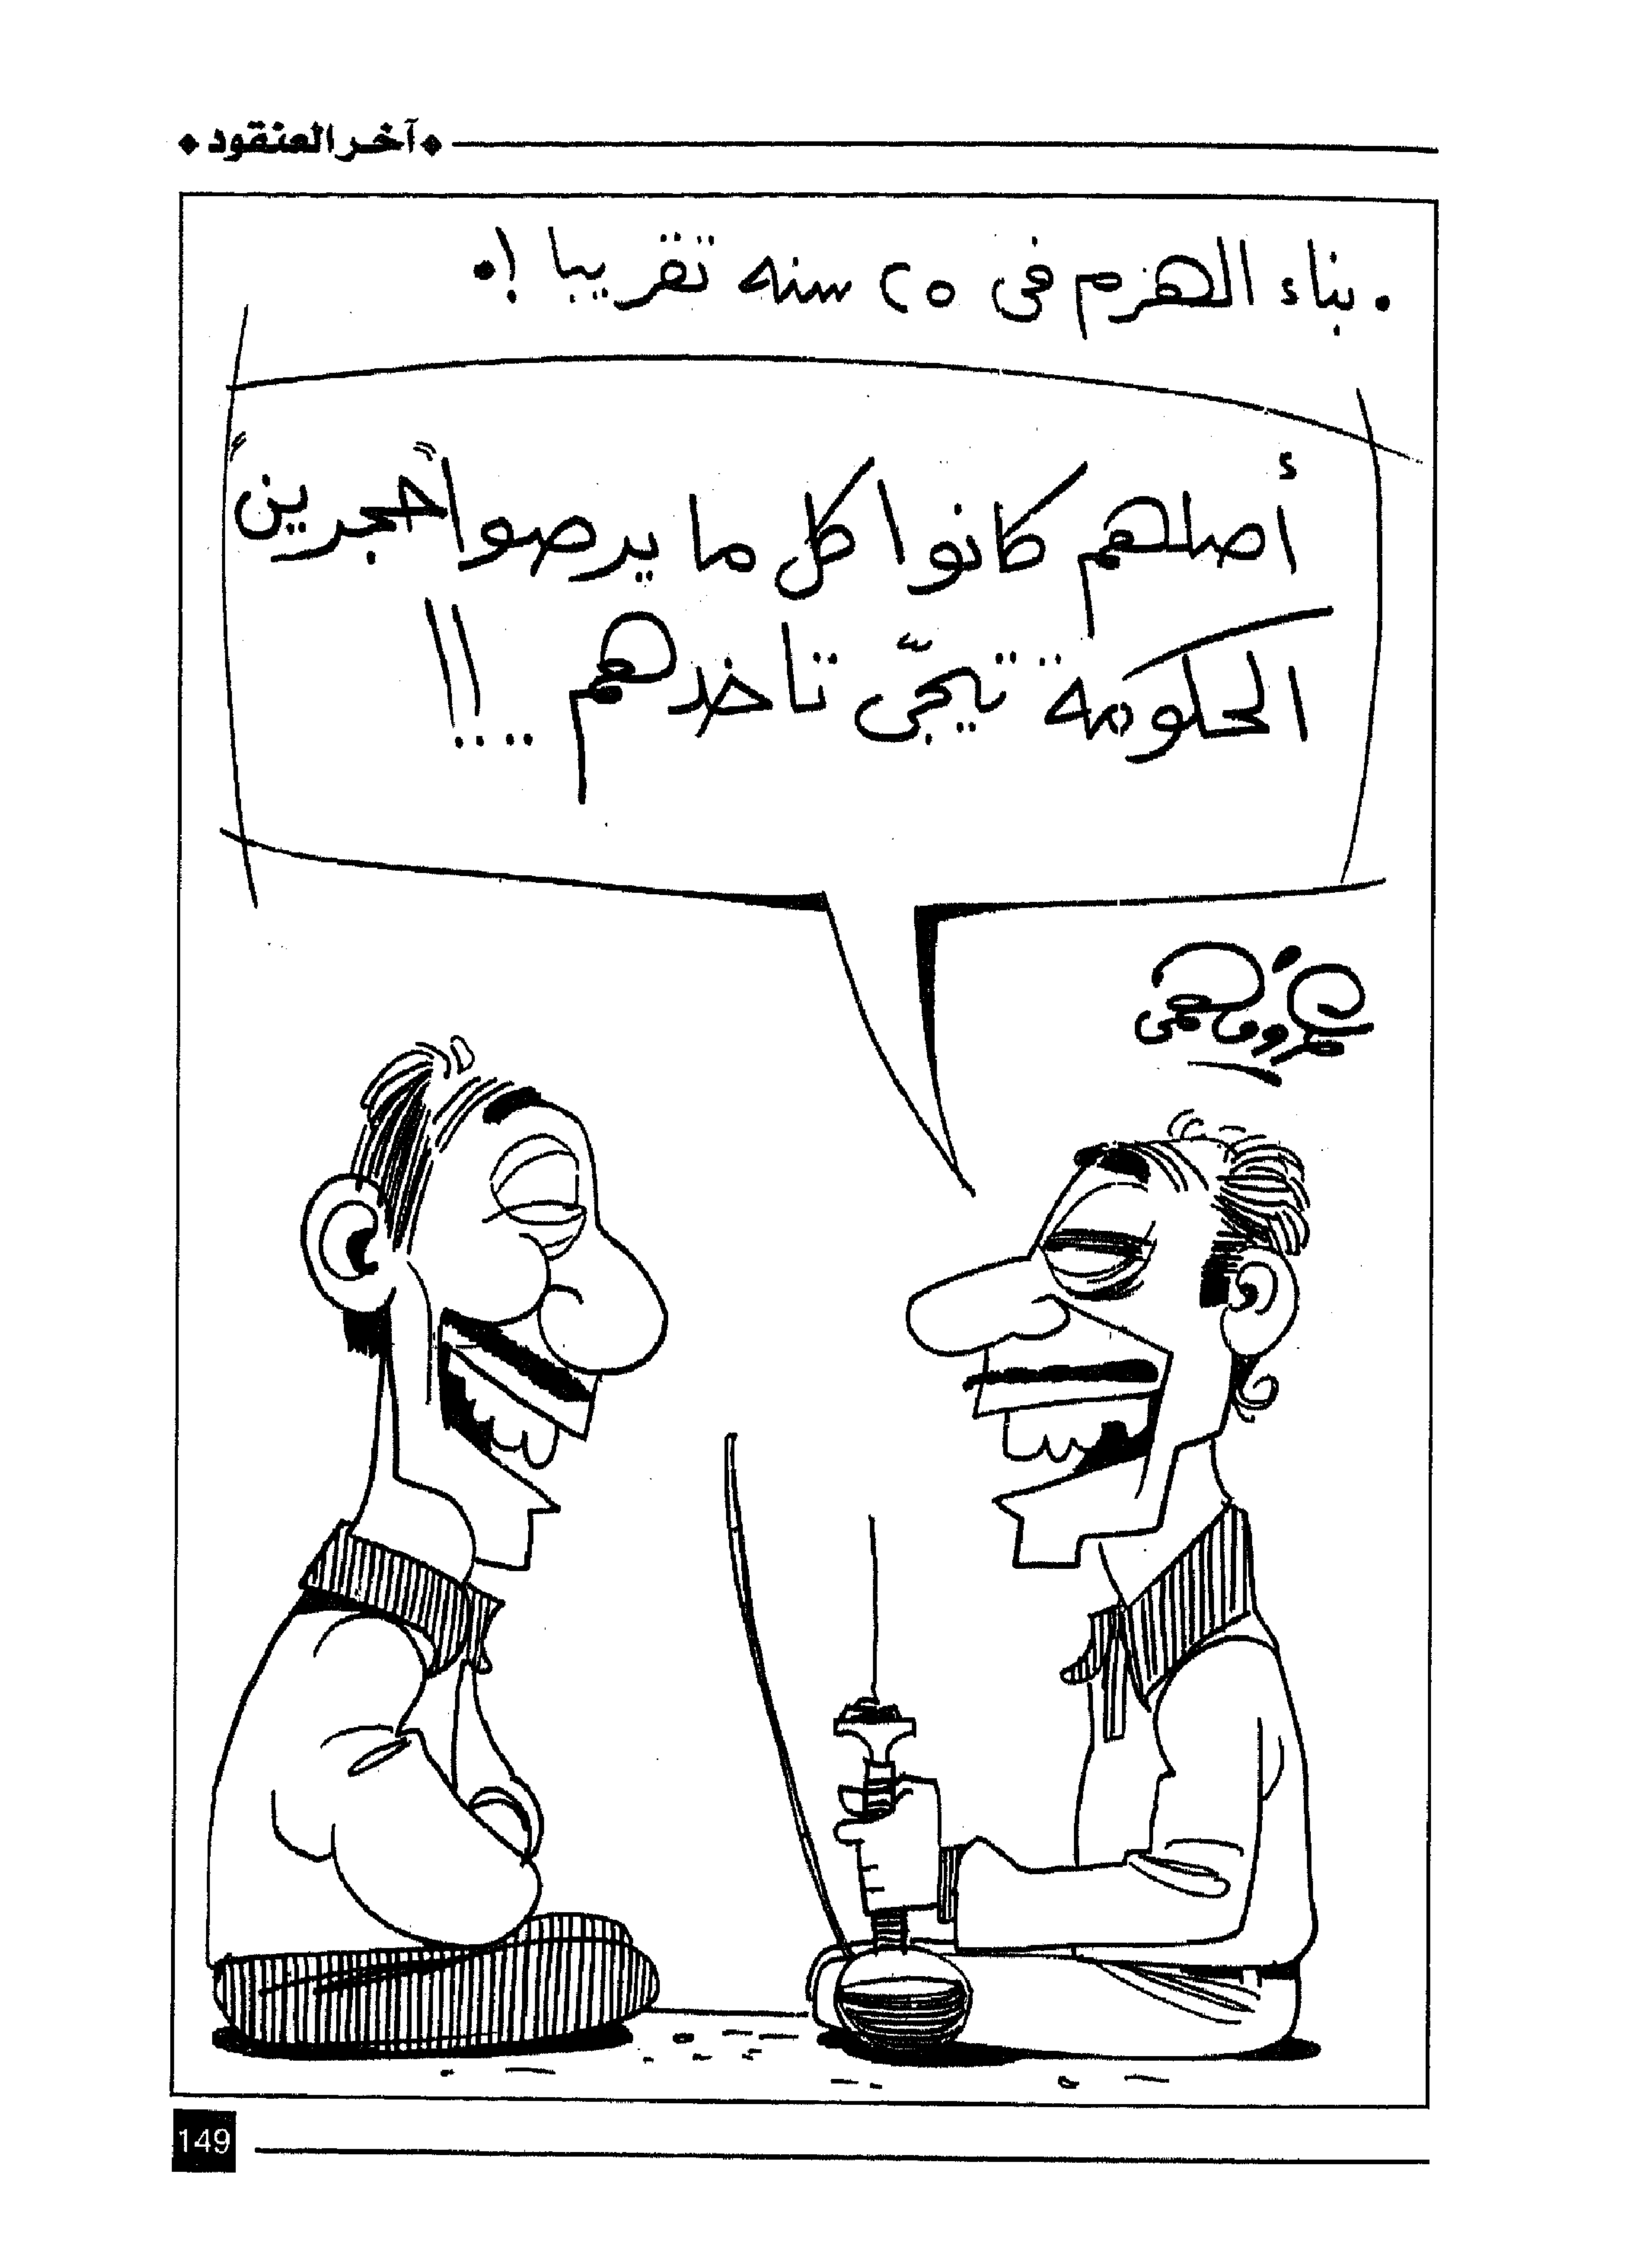 آخر العنقود
• بناء الهرم فى ٢٥ سنه تقريبا !•
أصلهم كانوا كل ما يرصوا حجرين
الحكومة تيجّى تاخدهم ....!!
عمرو فهمى
149